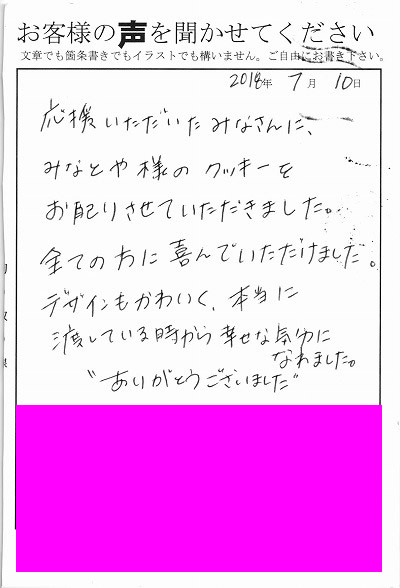 お客様の声を聞かせてください
文章でも箇条書きでもイラストでも構いません。ご自由にお書き下さい。
2018年 7月 10日
応援いただいたみなさんに、
みなとや様のクッキーを
お配りさせていただきました。
全ての方に喜んでいただけました。
デザインもかわいく、本当に
渡している時から幸せな気分に
なれました。
"ありがとうございました"